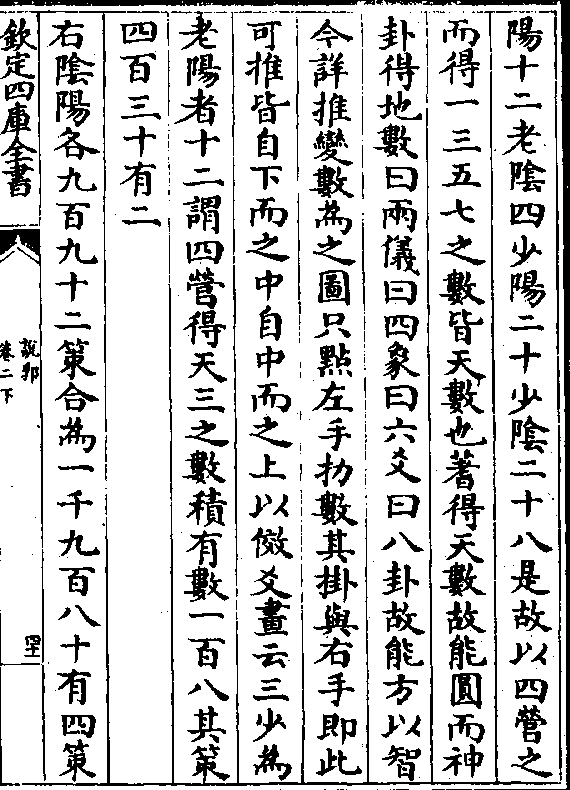 陽十二老陰四少陽二十少陰二十八是故以四營之
而得一三五七之數皆天數也蓍得天數故能圓而神
卦得地數曰兩儀曰四象曰六爻曰八卦故能方以智
今詳推變數為之圖只點左手扐數其掛與右手即此
可推皆自下而之中自中而之上以傚爻畫云三少為
老陽者十二謂四營得天三之數積有數一百八其策
四百三十有二
右陰陽各九百九十二策合為一千九百八十有四策
欽定四庫全書
說郛
卷二下